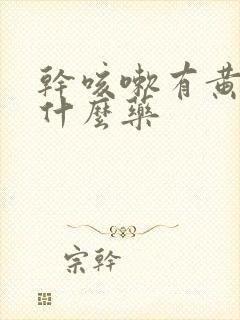 幹咳嗽有黃
什麼藥
宗幹